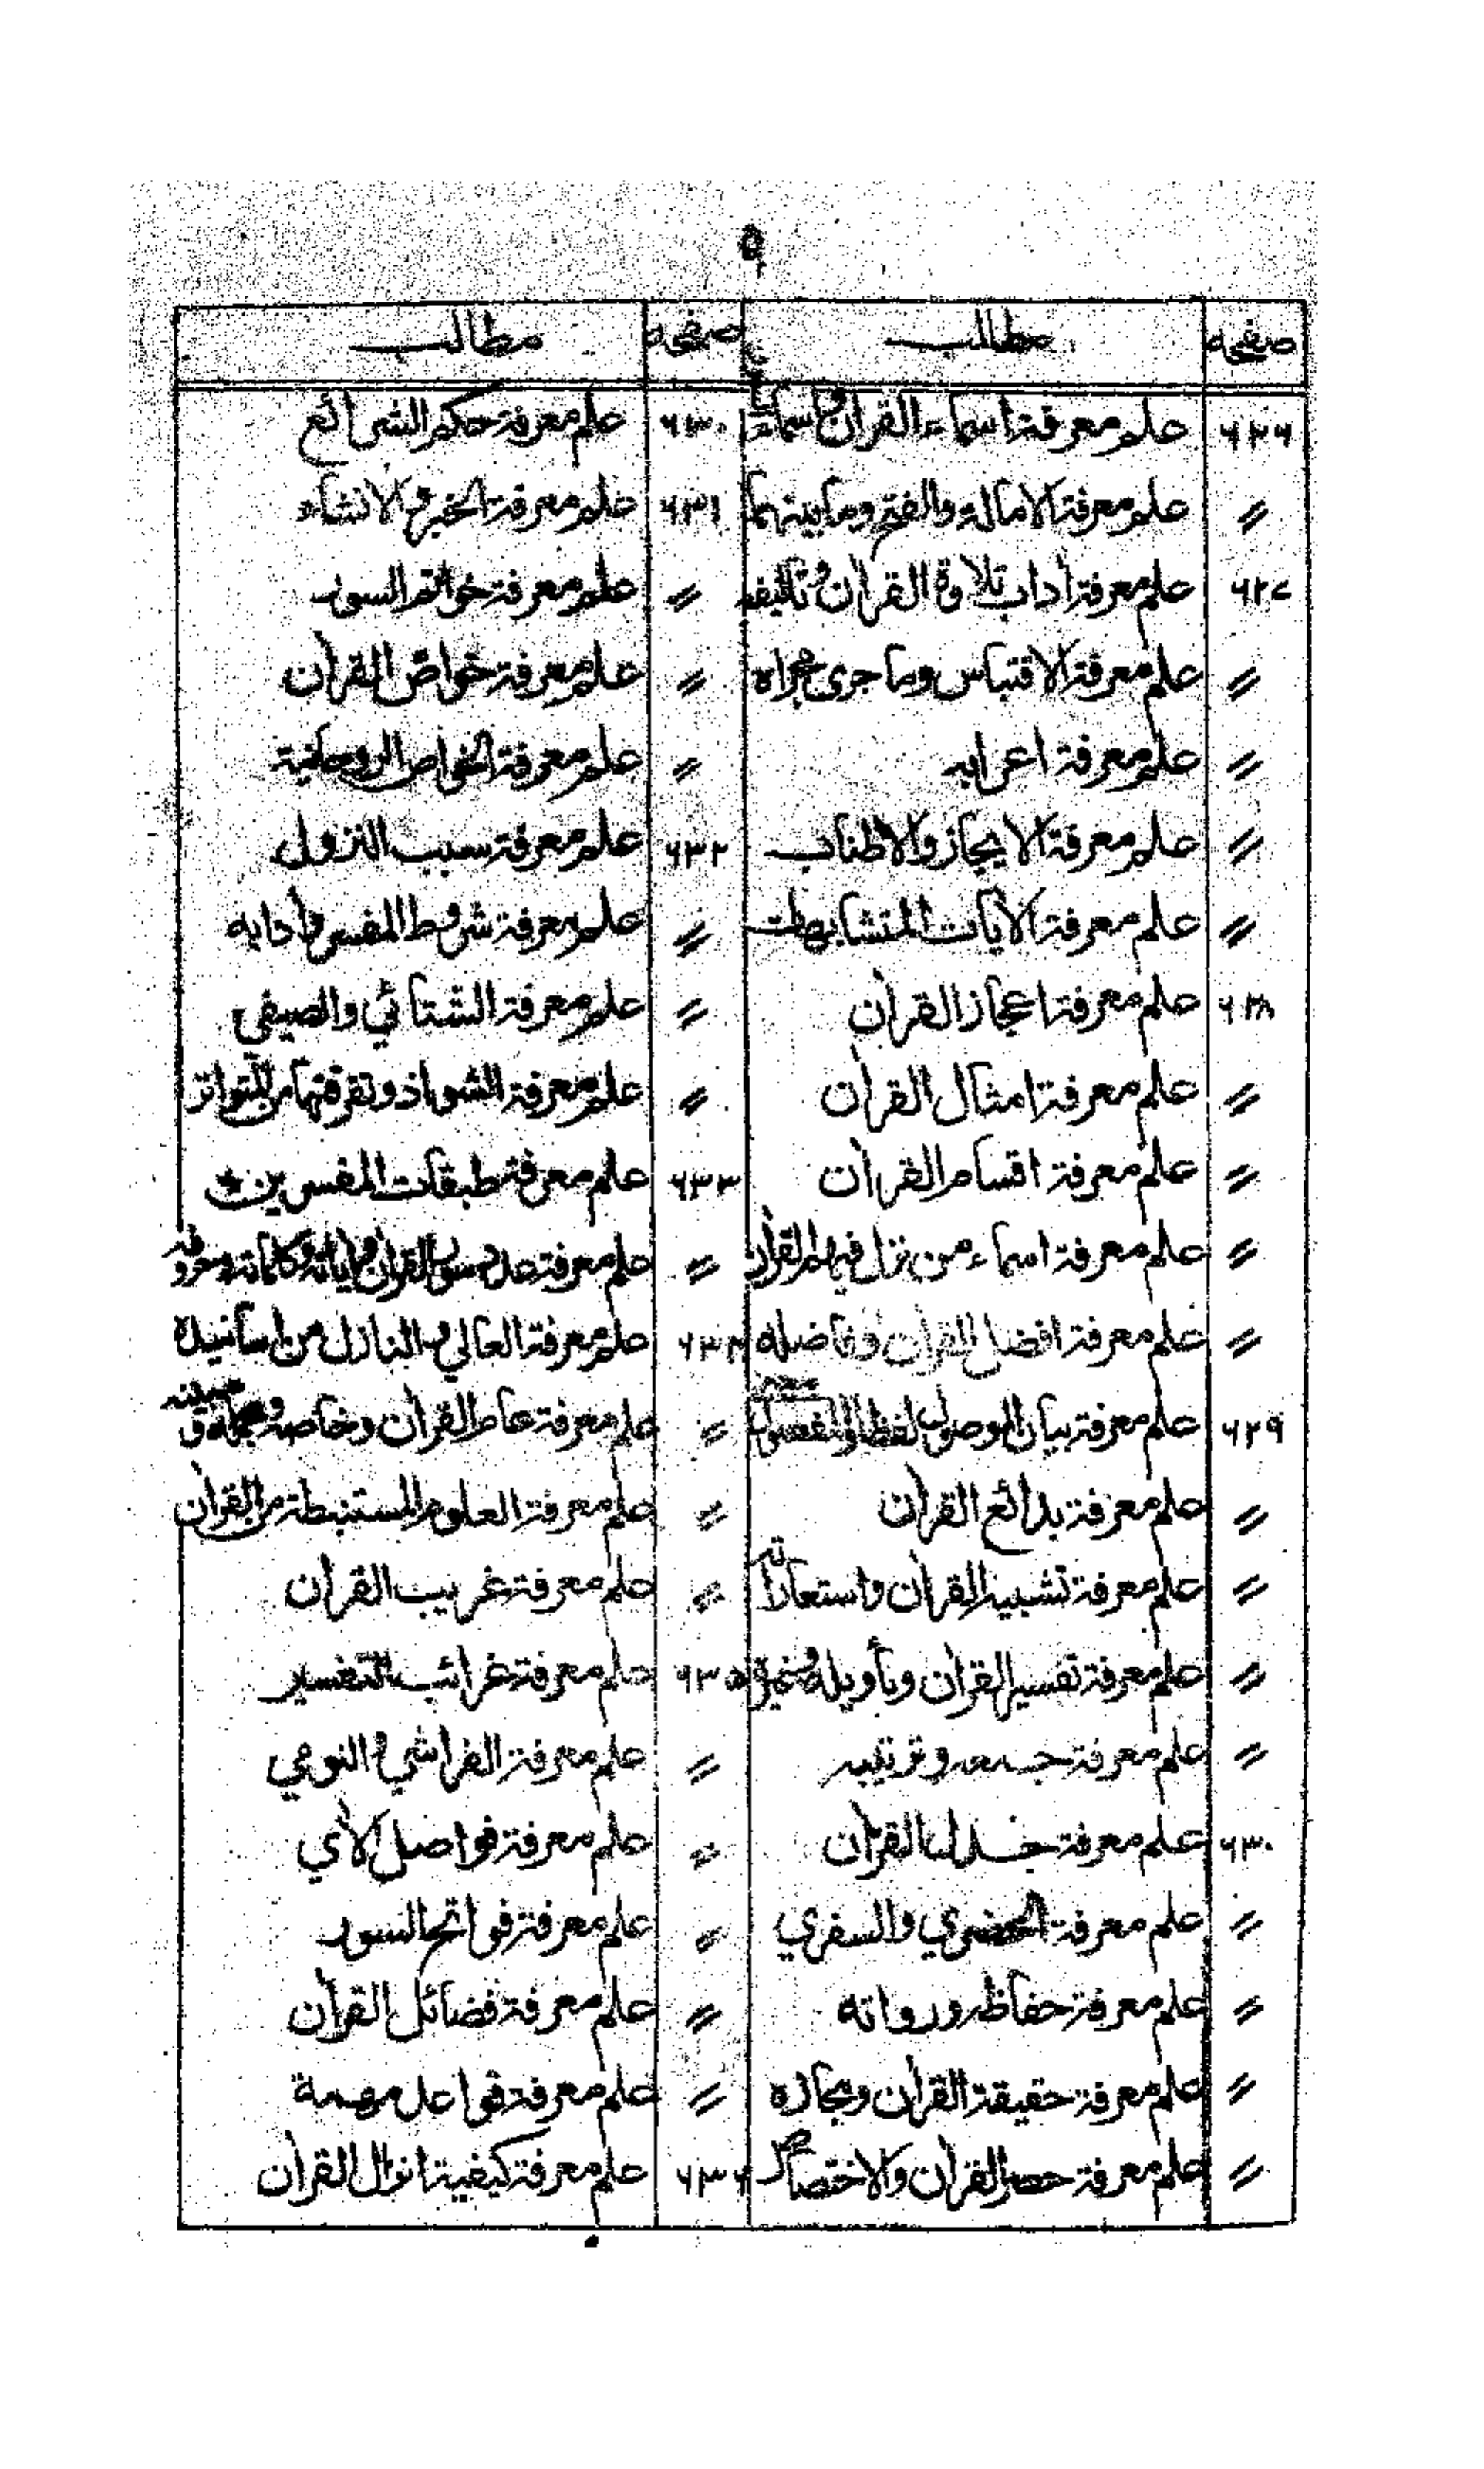 ۵
صفحه مطالب صفحه مطالب
۶۲۶ علم معرفة اسماء القران واسماء ۶۳۰ علم معرفة حكم الشرائع
〃 علم معرفة الامالة والفتح وما بينهما ۶۳۱ علم معرفة الخبر والانشاء
۶۲۷ علم معرفة اداب تلاوة القران وتاليفه 〃 علم معرفة خواتم السور
〃 علم معرفة الاقتباس وما جرى مجراه 〃 علم معرفة خواص القران
〃 علم معرفة اعرابه 〃 علم معرفة الخواص الروحانية
〃 علم معرفة الايجاز والاطناب ۶۳۲ علم معرفة سبب النزول
〃 علم معرفة الايات المتشابهات 〃 علم معرفة شروط المفسر وادابه
۶۲۸ علم معرفة اعجاز القران 〃 علم معرفة الشتائي والصيفي
〃 علم معرفة امثال القران 〃 علم معرفة الشواذ وتفرقتها من المتواتر
〃 علم معرفة اقسام القران ۶۳۳ علم معرفة طبقات المفسرين
〃 علم معرفة اسماء من نزل فيهم القران 〃 علم معرفة عدد سور القران واياته وكلماته وحروفه
〃 علم معرفة افضل القران وفاضله ۶۳۴ علم معرفة العالي والنازل من اسانيده
۶۲۹ علم معرفة بيان الموصول لفظا والمفصول معنى 〃 علم معرفة عام القران وخاصه ومجمله ومبينه
〃 علم معرفة بدائع القران 〃 علم معرفة العلوم المستنبطة من القران
〃 علم معرفة تشبيه القران واستعاراته 〃 علم معرفة غريب القران
〃 علم معرفة تفسير القران وتأويله وغيره ۶۳۵ علم معرفة غرائب التفسير
〃 علم معرفة جمعه وترتيبه 〃 علم معرفة الفراشي والنومي
۶۳۰ علم معرفة جدل القران 〃 علم معرفة فواصل الأي
〃 علم معرفة الحضري والسفري 〃 علم معرفة فواتح السور
〃 علم معرفة حفاظه ورواته 〃 علم معرفة فضائل القران
〃 علم معرفة حقيقة القران ومجازه 〃 علم معرفة قواعد مهمة
〃 علم معرفة حصر القران والاختصاص ۶۳۶ علم معرفة كيفية انزال القران